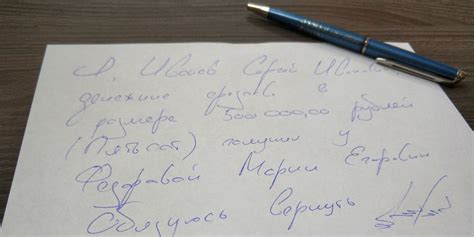 Я, Иванов Сергей Иванович,
денежные средства в
размере 500 000,00 рублей
(Пятьсот) получил у
Федоравой Марии Егоровны
Обязуюсь вернуть